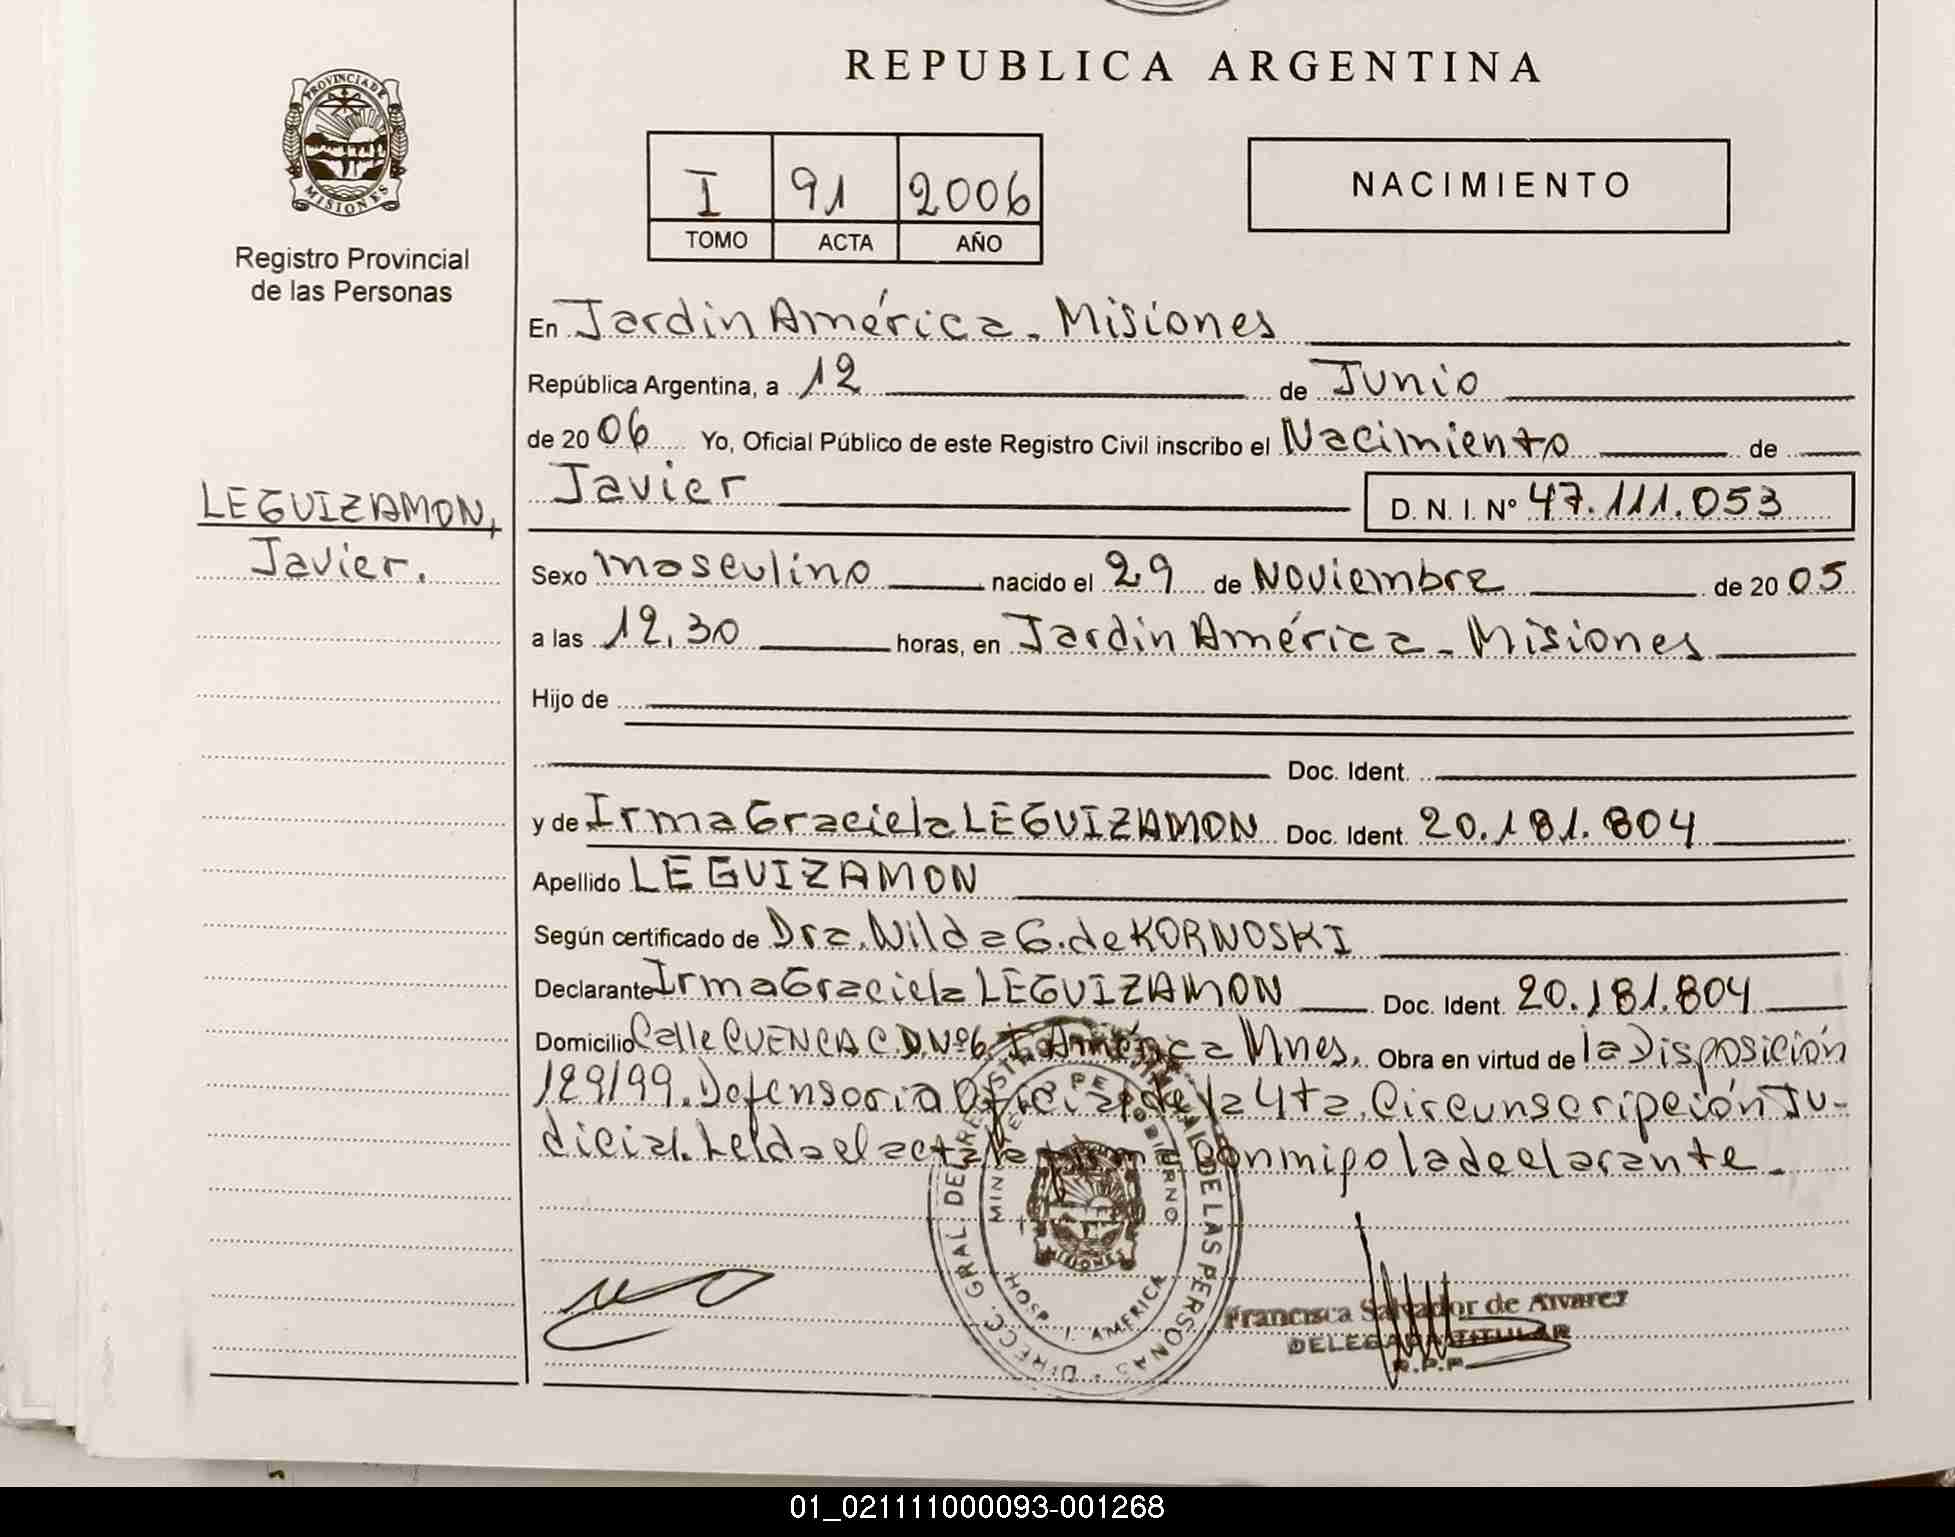 REPUBLICA ARGENTINA
PROVINCIA DE MISIONES
Registro Provincial
de las Personas
I 91 2006
TOMO ACTA AÑO
NACIMIENTO
En Jardin América - Misiones
República Argentina, a 12 de Junio
de 2006 Yo, Oficial Público de este Registro Civil inscribo el Nacimiento de
Javier D. N. I. Nº 47.111.053
LEGUIZAMON,
Javier.
Sexo masculino nacido el 29 de Noviembre de 2005
a las 12,30 horas, en Jardin América - Misiones
Hijo de
Doc. Ident.
y de Irma Graciela LEGUIZAMON Doc. Ident. 20.181.804
Apellido LEGUIZAMON
Según certificado de Dra. Nilda G. de KORNOSKI
Declarante Irma Graciela LEGUIZAMON Doc. Ident. 20.181.804
Domicilio Calle CUENCA C.D.Nº6. J. América Mnes. Obra en virtud de la Disposición
129/99. Defensoria Oficial de la 4ta. Circunscripción Ju-
dicial. Leida el acta la firma conmigo la declarante -
DIRECC. GRAL. DEL REGISTRO PROVINCIAL DE LAS PERSONAS
MINISTERIO DE GOBIERNO
MISIONES
HOSP. J. AMERICA
Francisca Salvador de Alvarez
DELEGADA TITULAR
R.P.P.
01_021111000093-001268